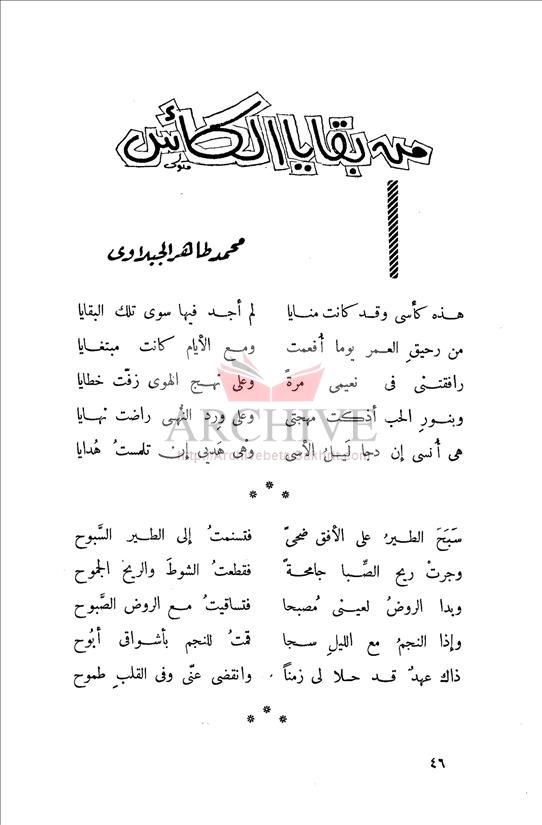 من بقايا الكأس
محمد طاهر الجبلاوى
هذه كأسى وقد كانت منايا لم أجد فيها سوى تلك البقايا
من رحيقِ العمر يوما أُفعمت ومع الأيام كانت مبتغايا
رافقتنى فى نعيمى مرةً وعلى نهج الهوى زفّت خطايا
وبنورِ الحب أذكت مهجتى وعلى ورد النُّهى راضت نهايا
هى أُنسى إن دجا لَيلُ الأسى وهى هَديى إن تلمستُ هُدايا
سَبَحَ الطيرُ على الأفق ضحىً فتسنمتُ إلى الطير السَّبوح
وجرتْ ريح الصِّبا جامحةً فقطعتُ الشوطَ والريحَ الجموح
وبدا الروضُ لعينى مُصبحا فتساقيتُ مع الروض الصَّبوح
وإذا النجمُ مع الليلِ سجا قمتُ للنجم بأشواقى أبُوح
ذاك عهدٌ قد حلا لى زمناً وانقضى عنّى وفى القلبِ طموح
٤٦
ARCHIVE